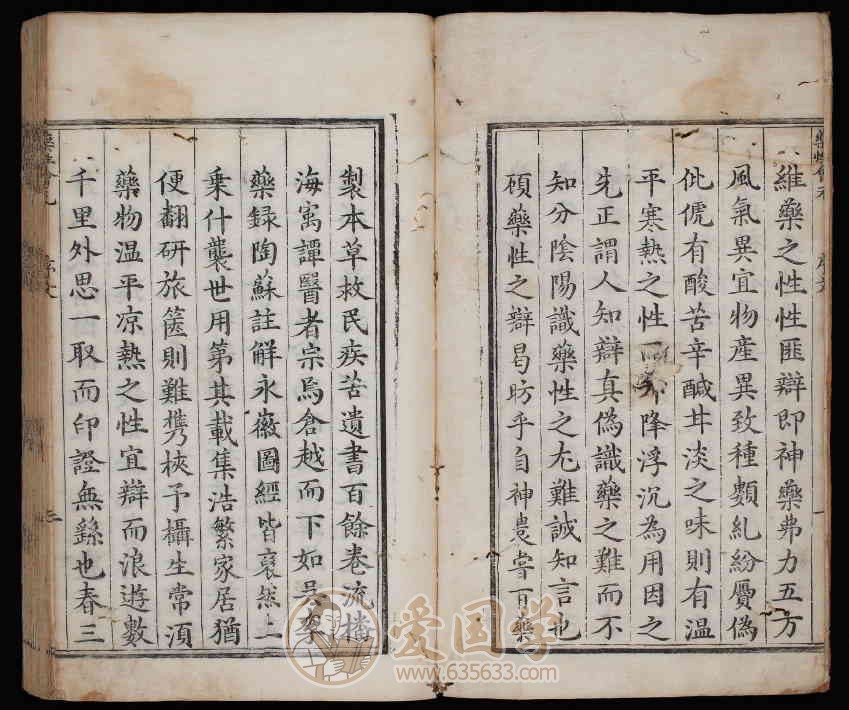 維藥之性性匪辯即神藥弗力五方
風氣異宜物產異致種類糺紛贗偽
仳傂有酸苦辛鹹甘淡之味則有溫
平寒熱之性 降浮沉為用因之
先正謂人知辯真偽識藥之難而不
知分陰陽識藥性之尢難誠知言也
頋藥性之辯曷昉乎自神農嘗百藥
製本草救民疾苦遺書百餘卷流播
海寓譚醫者宗焉倉越而下如吳李
藥録陶蘇註解永徽圖經皆裒然上
乗什襲世用第其載集浩繁家居猶
便翻研旅篋則難携挾予攝生常湏
藥物温平凉熱之性宜辯而浪遊數
千里外思一取而印證無繇也春三
序文
三
爱国学
www.635633.com